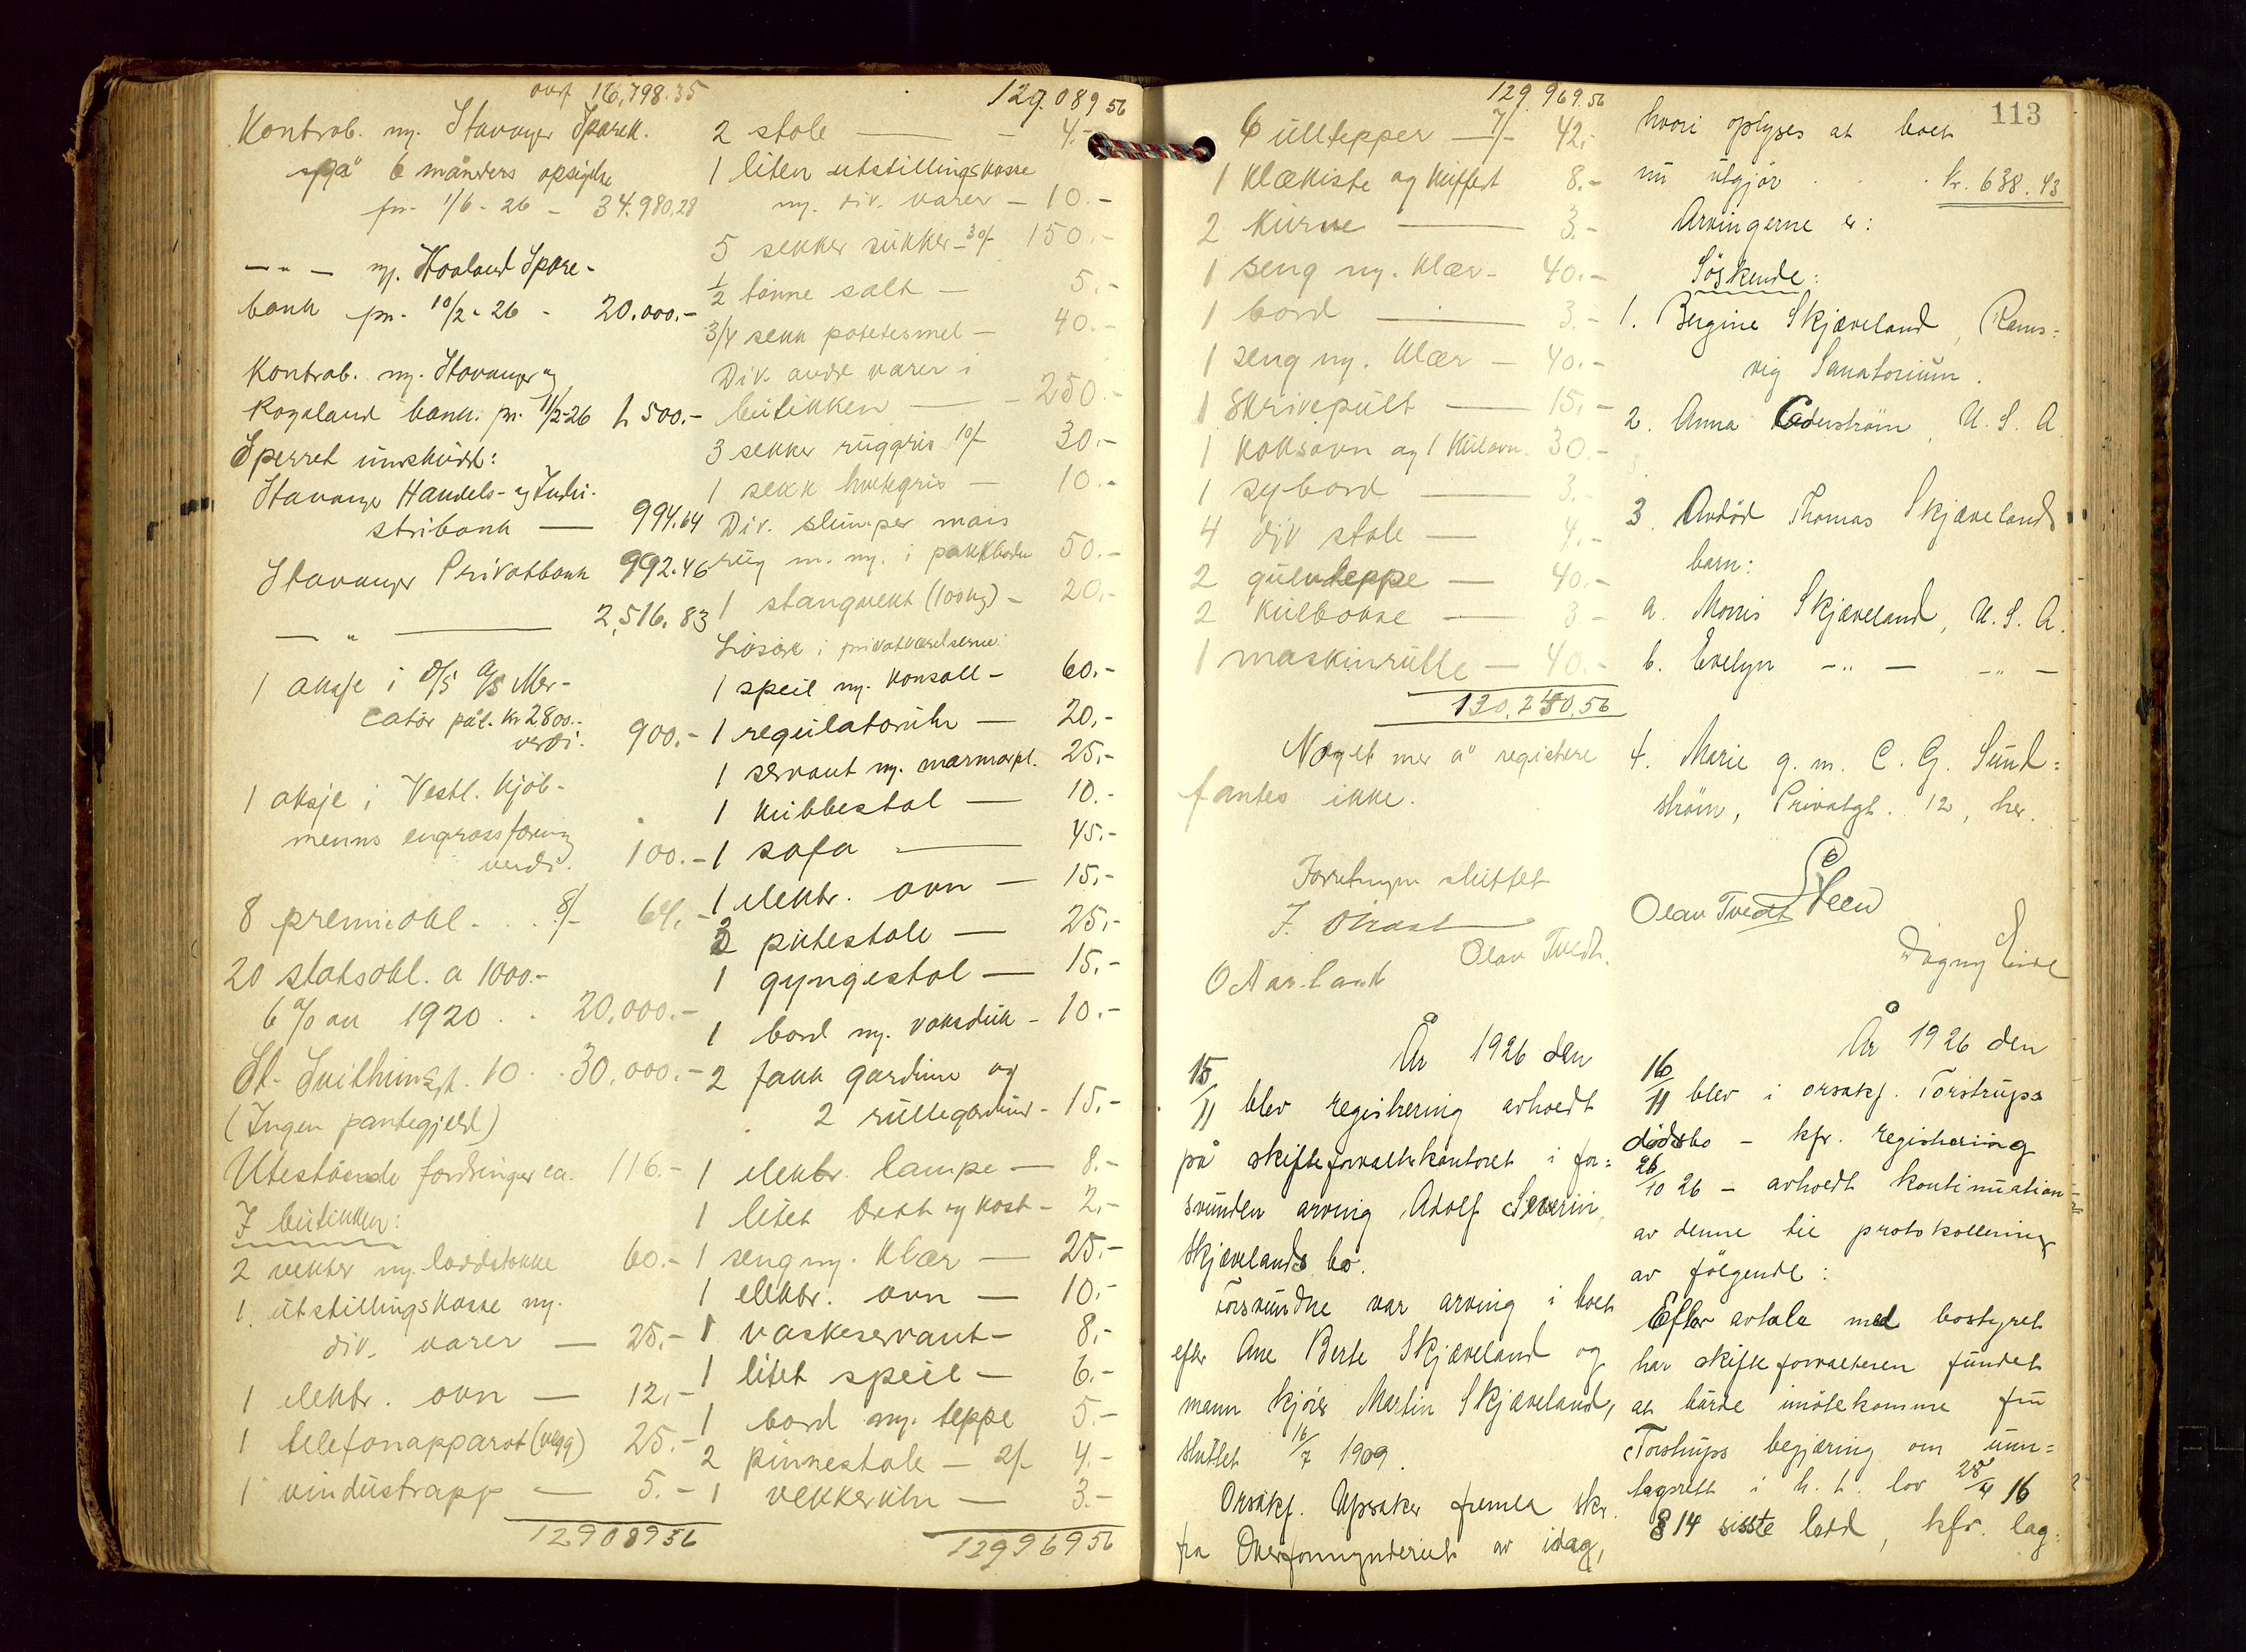 ovrf 16,798.35
Kontrab. m. Stavanger Sparek.
på 6 måneders opsigelse
pr. 1/6 - 26 - 34.980,28
— " — m. Haaland Spare-
bank pr. 10/2 - 26 - 20.000.-
Kontrab. m. Stavanger og
Rogaland bank. pr. 1/2-26 1,500.-
Sperret innskudd:
Stavanger Handels- og Indu-
stribank — 994.64
Stavanger Privatbank 992.46
— " — 2,516.83
1 aksje i D/S A/S Mer-
cator pål. kr 2800.-
verdi. 900.-
1 aksje i Vestl. Kjøb-
menns engrosforening
verdi. 100.-
8 premieobl. . . 8/- 64.-
20 statsobl. a 1000.-
6 % av 1920 . . 20,000.-
St. Svithunsgt. 10 . . 30,000.-
(Ingen pantegjeld)
Utestående fordringer ca. 116.-
I butikken:
2 vekter m. loddstokke 60.-
1 utstillingskasse m.
div. varer — 25.-
1 elektr. ovn — 12.-
1 telefonapparat (vegg) 25.-
1 vindustrapp — 5.-
129089 56
129.089 56
2 stole — 4.-
1 liten utstillingskasse
m. div. varer — 10.-
5 sekker sukker - 30/- 150.-
1/2 tønne salt — 5.-
3/4 sekk potetesmel — 40.-
Div. andre varer i
butikken — 250.-
3 sekker ruggris 10/- 30.-
1 sekk hvetegris — 10.-
Div. slumper mais
rug m. m. i pakkboden 50.-
1 stangvekt (100 kg) - 20.-
Løsøre i privatværelserne:
1 speil m. konsoll - 60.-
1 regulatoruhr — 20.-
1 servant m. marmorpl. 25.-
1 kubbestol — 10.-
1 sofa — 45.-
1 elektr. ovn — 15.-
2 putestole — 25.-
1 gyngestol — 15.-
1 bord m. voksduk - 10.-
2 fakk gardiner og
2 rullegardiner - 15.-
1 elektr. lampe — 8.-
1 litet brett og kost - 2.-
1 seng m. klær — 25.-
1 elektr. ovn — 10.-
1 vaskeservant — 8.-
1 litet speil — 6.-
1 bord m. teppe 5.-
2 pinnestole — 2/- 4.-
1 vekkeruhr — 3.-
129969 56
129.969.56
6 ulltepper — 7/- 42.-
1 klækiste og kuffert 8.-
2 kurve — 3.-
1 seng m. klær - 40.-
1 bord — 3.-
1 seng m. klær — 40.-
1 skrivepult — 15.-
1 koksovn og 1 kulovn. 30.-
1 sybord — 3.-
4 div stole — 4.-
2 gulvteppe — 40.-
2 kulbokse — 3 -
1 maskinrulle — 40.-
130,240,56
Noget mer å registere
fantes ikke.
Forretningen sluttet
Olav Tvedt.
O Aarland
År 1926 den
15/11 blev registrering avholdt
på skifteforvalterkontoret i for=
svunden arving Adolf Severin
Skjævelands bo.
Forsvundne var arving i boet
efter Ane Berte Skjæveland og
mann kjører Martin Skjæveland,
sluttet 16/7 1909.
Orsakf. Upsaker fremla skr.
fra Overformynderiet av idag,
113
hvori oplyses at boet
nu utgjør . . . kr. 638.43
Arvingerne er:
Søskende:
1. Bergine Skjæveland, Rams=
vig Sanatorium.
2. Anna Cederstrøm, U. S. A.
3. Avdød Thomas Skjævelands
barn:
a. Morris Skjæveland, U. S. A.
b. Evelyn — " — — " —
4. Marie g. m. C. G. Sund=
strøm, Privatgt. 12, her.
Steen
Olav Tvedt
Dagny Eide
År 1926 den
16/11 blev i orsakf. Torstrups
dødsbo - kfr. registrering
26/10 26 - avholdt kontinuation
av denne til protokollering
av følgende:
Efter avtale med bostyret
har skifteforvalteren fundet
at burde imøtekomme fru
Torstrups begjæring om uun=
tagsrett i h. t. lov 28/4 16
§ 14 siste ledd, kfr. lag-